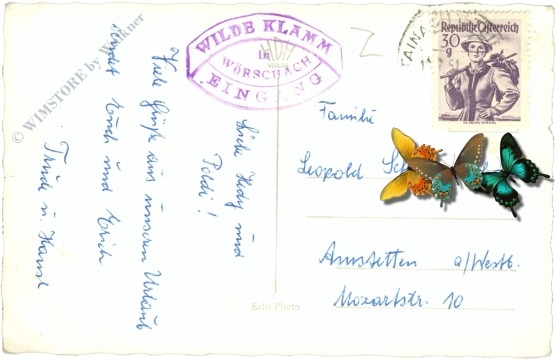 WILDE KLAMM
in
WÖRSCHACH
EINGANG
HDH
VERLAG
Republik Österreich
30
g
© WIMSTORE by Walkner
Liebe Hedy und
Poldi!
Viele Grüße aus unseren Urlaub
sendet Euch und Erich
Trude u. Hansl
Familie
Leopold
Amstetten a/Westb.
Mozartstr. 10
Echt Photo